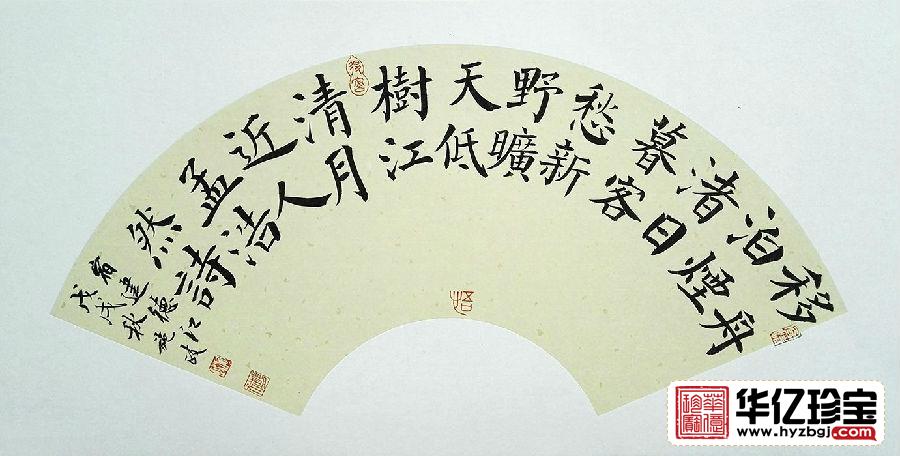 移舟
泊煙
渚日
暮客
愁新
野曠
天低
樹江
清月
近人
孟浩
然詩
宿建德江
戊戌秋
悟
华亿珍宝
www.hyzbgj.com